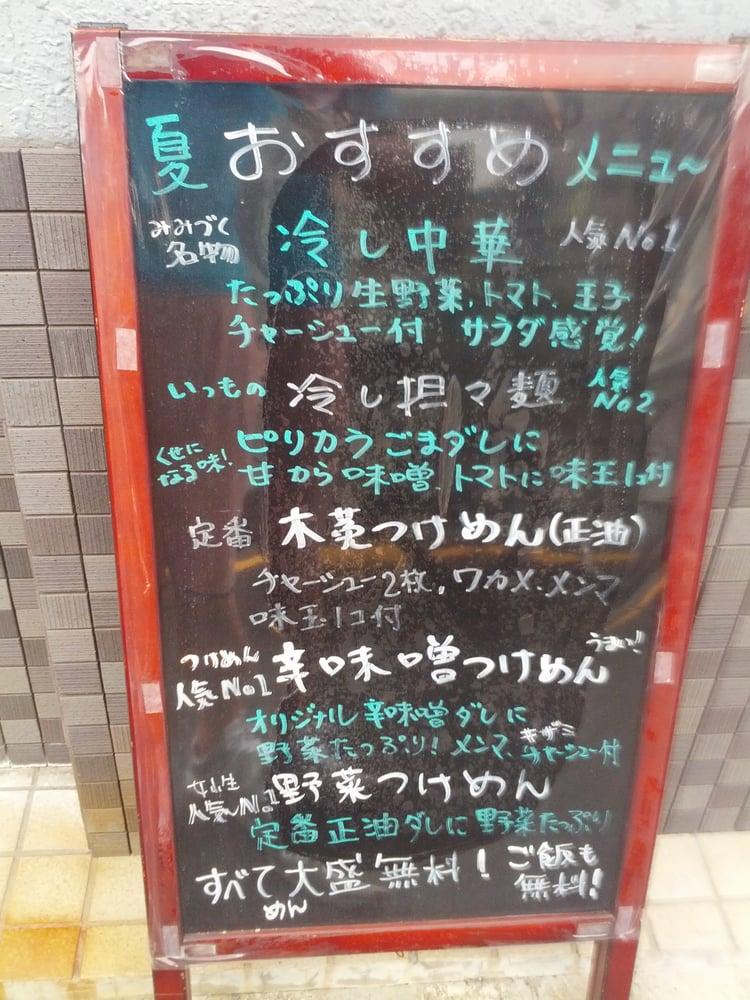 夏おすすめメニュ〜
みみづく
名物
冷し中華
人気No1
たっぷり生野菜、トマト、玉子
チャーシュー付 サラダ感覚!
いつもの
冷し担々麺
人気
No2
くせに
なる味!
ピリカラごまダレに
甘から味噌、トマトに味玉1コ付
定番
つけめん(正油)
チャーシュー2枚、ワカメ、メンマ
味玉1コ付
つけめん
人気No1
辛味噌つけめん
うまい!!
オリジナル辛味噌ダレに
野菜たっぷり!メンマ、キザミチャーシュー付
女性
人気No.1
野菜つけめん
定番正油ダレに野菜たっぷり
すべて大盛無料!
めん
ご飯も
無料!